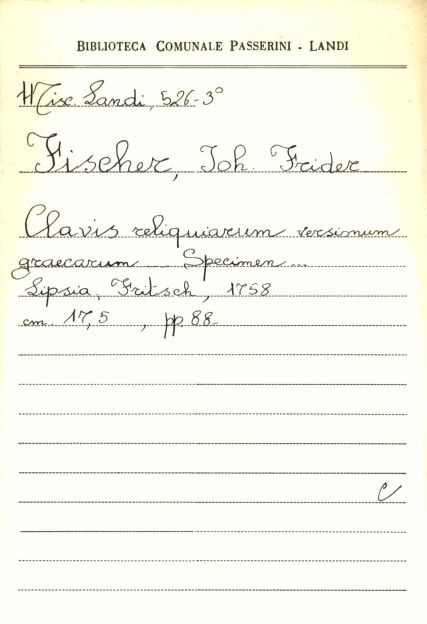 BIBLIOTECA COMUNALE PASSERINI - LANDI
Misc. Landi, 526-3°
Fischer, Joh. Frider
Clavis reliquiarum versionum
graecarum ... Specimen ...
Lipsia, Fritsch, 1758
cm. 17,5 , pp. 88
C